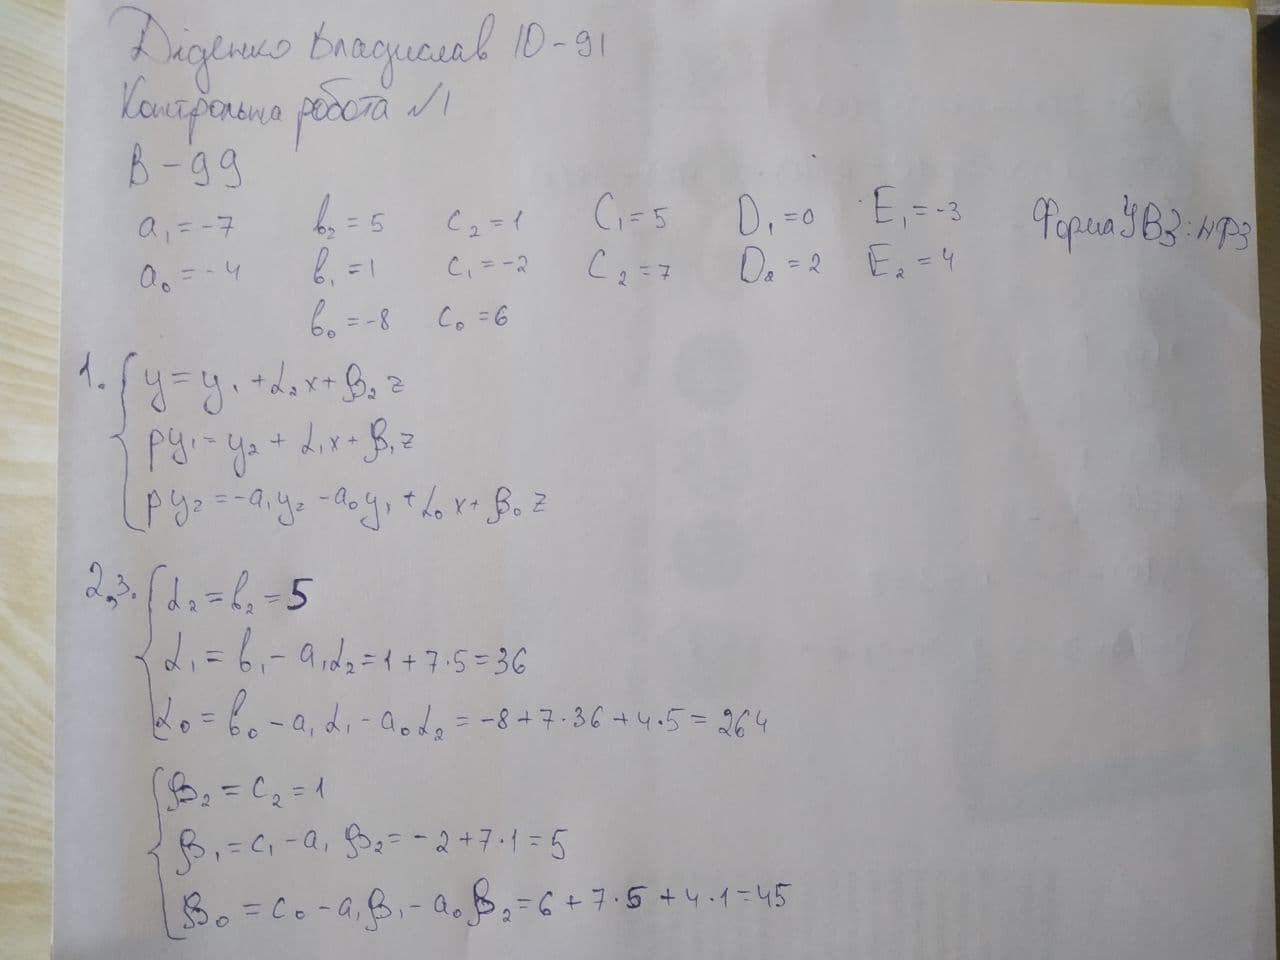 Діденко Владислав ІО-91
Контрольна робота №1
В-99
a₁=-7 b₂=5 c₂=1 C₁=5 D₁=0 E₁=-3 Форма УВЗ: НФЗ
a₀=-4 b₁=1 c₁=-2 C₂=7 D₂=2 E₂=4
b₀=-8 c₀=6
1. { y=y₁+α₂x+β₂z
py₁=y₂+α₁x+β₁z
py₂=-a₁y₂-a₀y₁+α₀x+β₀z
2,3. { α₂=b₂=5
α₁=b₁-a₁α₂=1+7·5=36
α₀=b₀-a₁α₁-a₀α₂=-8+7·36+4·5=264
{ β₂=c₂=1
β₁=c₁-a₁β₂=-2+7·1=5
β₀=c₀-a₁β₁-a₀β₂=6+7·5+4·1=45